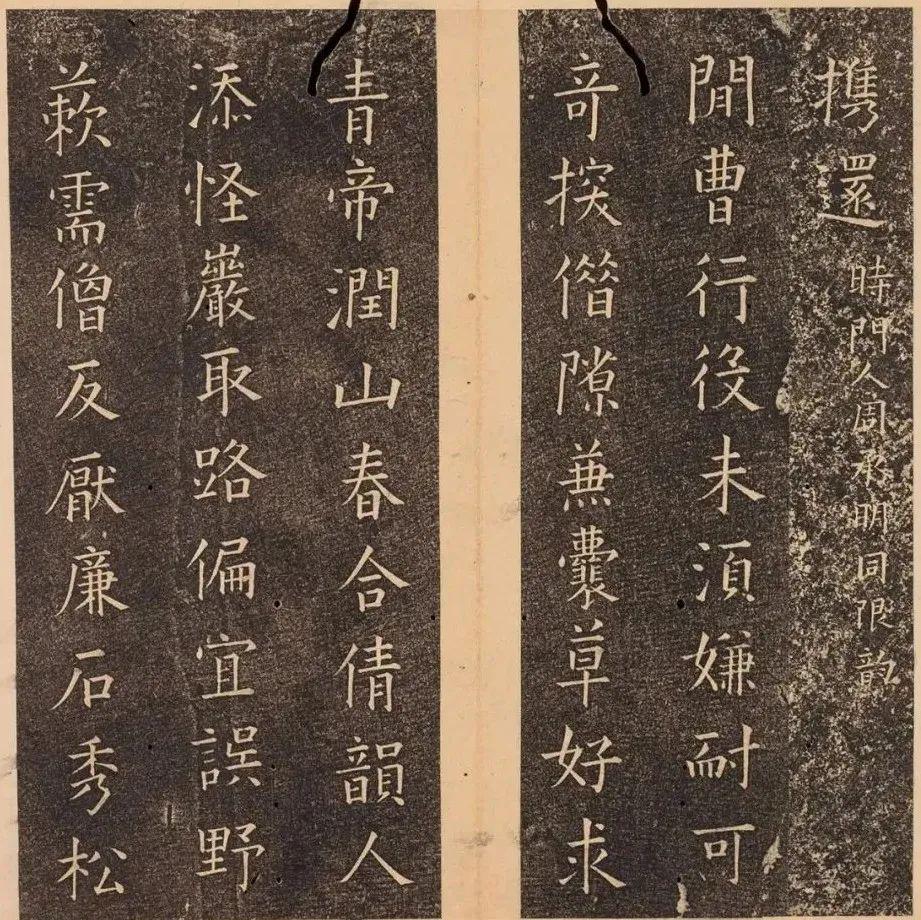 攜還 時門人周承明同限韵
閒曹行役未湏嫌耐可
竒探偕隙兼囊草好求
青帝潤山春合倩韻人
添怪巖取路偏宜誤野
蔌需僧反厭廉石秀松